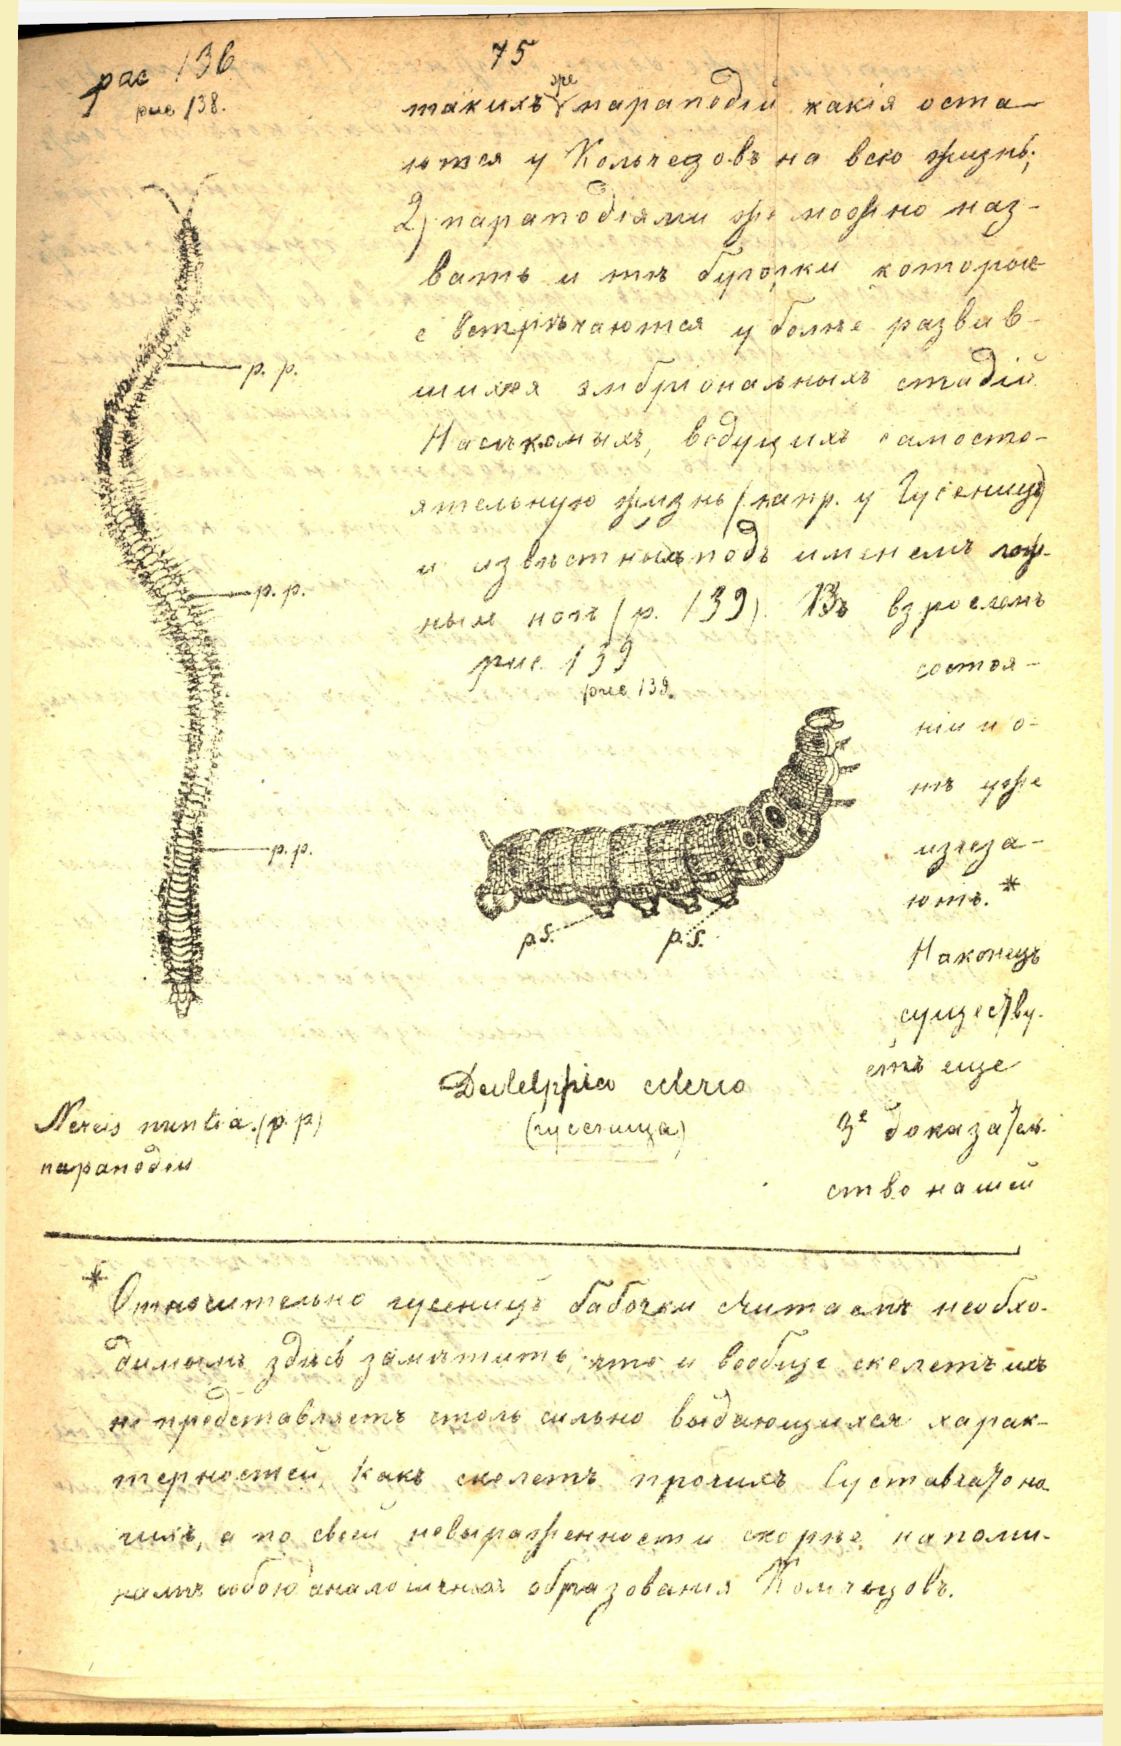 75
рис 138
рис 138.
такихъ же параподій какія оста-
ются у Кольчецовъ на всю жизнь;
2) параподіями же можно наз-
вать и тѣ бугорки которые
встрѣчаются у болѣе развив-
шихся эмбріональныхъ стадій
Насѣкомыхъ, ведущихъ самосто-
ятельную жизнь (напр. у Гусеницъ)
и извѣстныхъ подъ именемъ лож-
ныхъ ногъ (р. 139). Въ взросломъ
рис 139
рис 139.
состоя-
ніи и о-
нѣ уже
изчеза-
ютъ.*
Наконецъ
существу-
етъ еще
3е доказатель-
ство нашей
p. p.
p. p.
p. p.
p.s.
p.s.
(гусеница)
Nereis nuntia. (p. p)
параподіи
* Относительно гусеницъ бабочки считаемъ необхо-
димымъ здѣсь замѣтить, что и вообще скелетъ ихъ
не представляетъ столь сильно выдающихся харак-
терностей, какъ скелетъ прочихъ Суставчатоно-
гихъ, а по своей невыраженности скорѣе напоми-
наетъ собою аналогичныя образованія Кольчецовъ.